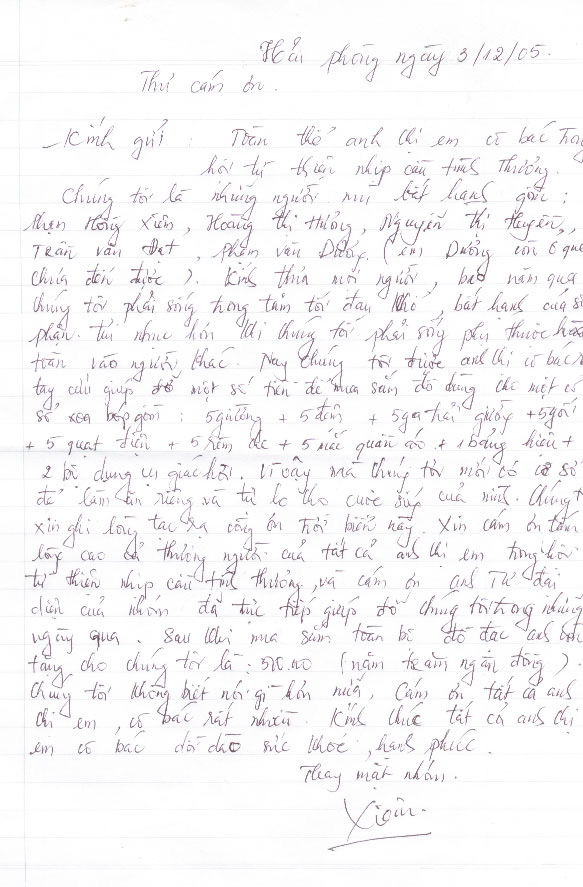 Hải phòng ngày 3/12/05.
Thư cám ơn.
- Kính gửi : Toàn thể anh chị em cô bác trong
hội từ thiện nhịp cầu tình thương.
Chúng tôi là những người mù bất hạnh gồm :
Phạm Hồng Xiêm, Hoàng thị Hương, Nguyễn thị Huyền,,
Trần văn Đạt, phạm văn Dưỡng. (em Dưỡng còn ở quê
chưa đến được). Kính thưa mọi người, bao năm qua
chúng tôi phải sống trong tăm tối đau khổ, bất hạnh của số
phận. Tủi nhục hơn khi chúng tôi phải sống phụ thuộc hoàn
toàn vào người khác. Nay chúng tôi được anh chị cô bác
tay cứu giúp một số tiền để mua sắm đồ dùng cho một cơ
sở xoa bóp gồm : 5 giường + 5 đệm + 5 ga trải giường + 5 gối
+ 5 quạt điện + 5 rèm + 5 mắc quần áo + 1 bảng hiệu +
2 bộ dụng cụ giác hơi. Vì vậy mà chúng tôi mới có cơ sở
để làm ăn riêng và tự lo cho cuộc sống của mình. Chúng t
xin ghi lòng tạc dạ công ơn trời biển này. Xin cám ơn tấm
lòng cao cả thương người của tất cả anh chị em trong hội
từ thiện nhịp cầu tình thương, và cám ơn anh Tư đại
diện của nhóm đã trực tiếp giúp đỡ chúng tôi trong những
ngày qua. Sau khi mua sắm toàn bộ đồ đạc anh
tặng cho chúng tôi là : 500.00 (năm trăm ngàn đồng).
Chúng tôi không biết nói gì hơn nữa, Cám ơn tất cả anh
chị em, cô bác rất nhiều. Kính chúc tất cả anh chị
em cô bác dồi dào sức khỏe, hạnh phúc.
Thay mặt nhóm.
Xiêm.